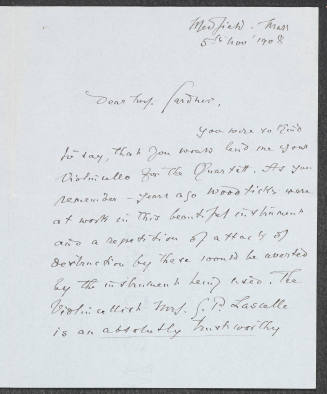 Medfield. Mass
5th Nov 1908
Dear Mrs. Gardner,
you were so kind
to say, that you would lend me your
Violincello for the Quartett. As you
remember - years ago woodticks were
at work in this beautiful instrument
and a repetition of attacks of
destruction by these would be averted
by the instrument being used. The
Violincellist Mrs. G. P. Lascelle
is an absolutely trustworthy